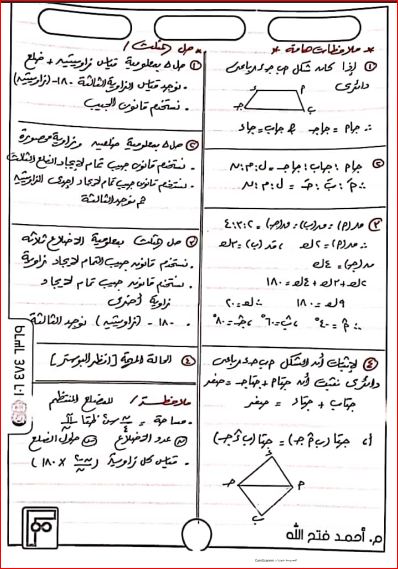 * ملاحظات هامة *
① إذا كان شكل م ب جـ د رباعى
دائرى
∴ جا م = جا جـ & جا ب = جا د
② جا م : جا ب : جا جـ = ل : م : ن
∴ مَ : بَ : جـَ = ل : م : ن
③ ق(م) : ق(ب) : ق(جـ) = ٢:٣:٤
∴ ق(م) = ٢ك ، ق(ب) = ٣ك
ق(جـ) = ٤ك
٢ك + ٣ك + ٤ك = ١٨٠
٩ك = ١٨٠ ∴ ك = ٢٠
∴ م = ٤٠° ، ب = ٦٠° ، جـ = ٨٠°
④ لإثبات أن الشكل م ب جـ د رباعى
دائرى نثبت أن جتا م + جتا جـ = صفر
جتا ب + جتا د = صفر
* حل المثلث /
① حل Δ بمعلومية قياس زاويتين + ضلع
• نوجد قياس الزاوية الثالثة ١٨٠ - (زاويتين)
• نستخدم قانون الجيب
② حل Δ بمعلومية ضلعين وزاوية محصورة
• نستخدم قانون جيب تمام لإيجاد الضلع الثالث
• نستخدم قانون جيب تمام لإيجاد إحدى الزاويتين
ثم نوجد الثالثة
③ حل المثلث بمعلومية الأضلاع ثلاثة
• نستخدم قانون جيب التمام لإيجاد زاوية
• نستخدم قانون جيب تمام لإيجاد
زاوية أخرى
• ١٨٠ - (زاويتين) نوجد الثالثة
④ الحالة المبهمة [انظر البوستر]
ملاحظة / للمضلع المنتظم
ن عدد الأضلاع س طول الضلع
م. أحمد فتح الله